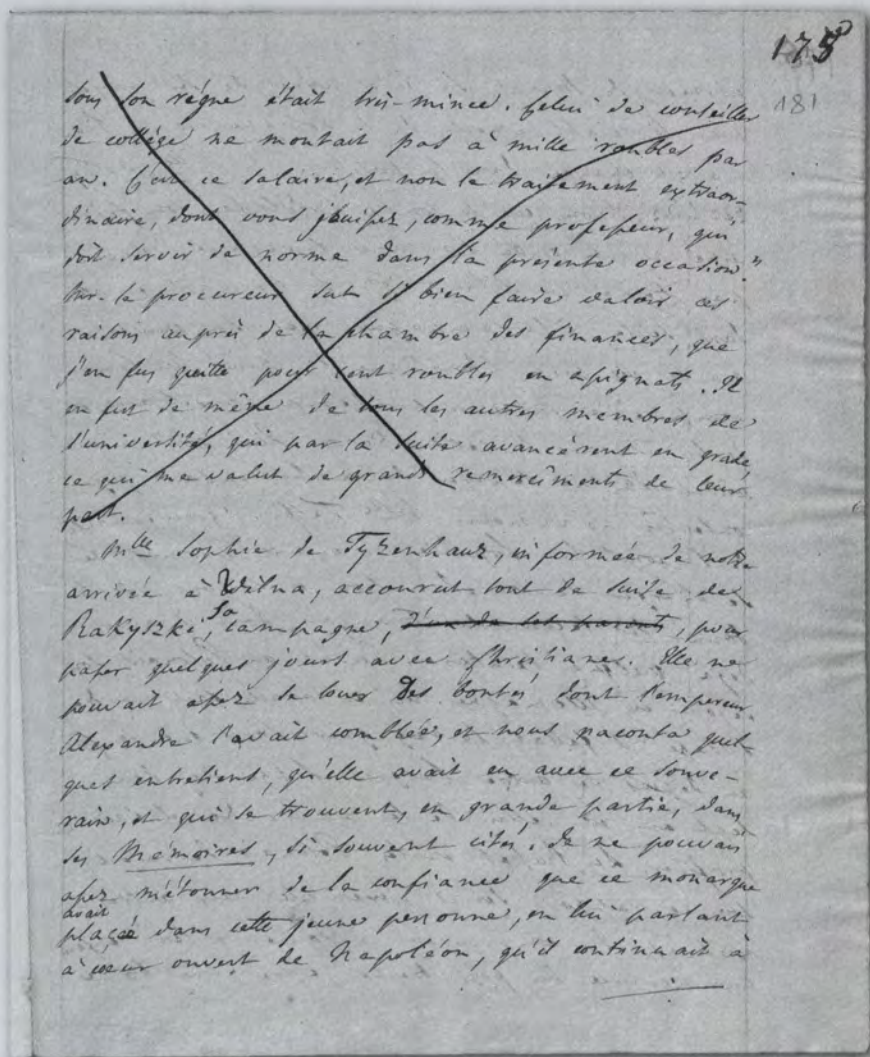 175
181
sous son règne était très-mince. Celui de conseiller
de collége ne montait pas à mille roubles par
an. C'est ce salaire, et non le traitement extraor-
dinaire, dont vous jouissez, comme professeur, qui
doit servir de norme dans la présente occasion."
Mr. le procureur sut si bien faire valoir ces
raisons auprès de la chambre des finances, que
j'en fus quitte pour cent roubles en assignats. Il
en fut de même de tous les autres membres de
l'université, qui par la suite avancèrent en grade,
ce qui me valut de grands remercîments de leur
part.
Mlle Sophie de Tyzenhauz, informée de notre
arrivée à Wilna, accourut tout de suite de
Rakyszki, sa campagne, d'un de ses parents, pour
passer quelques jours avec Christiane. Elle ne
pouvait assez se louer des bontés dont l'empereur
Alexandre l'avait comblée, et nous raconta quel-
ques entretiens, qu'elle avait eu avec ce souve-
rain, et qui se trouvent, en grande partie, dans
ses Mémoires, si souvent cités. Je ne pouvais
assez m'étonner de la confiance que ce monarque
avait placée dans cette jeune personne, en lui parlant
à coeur ouvert de Napoléon, qu'il continuait à